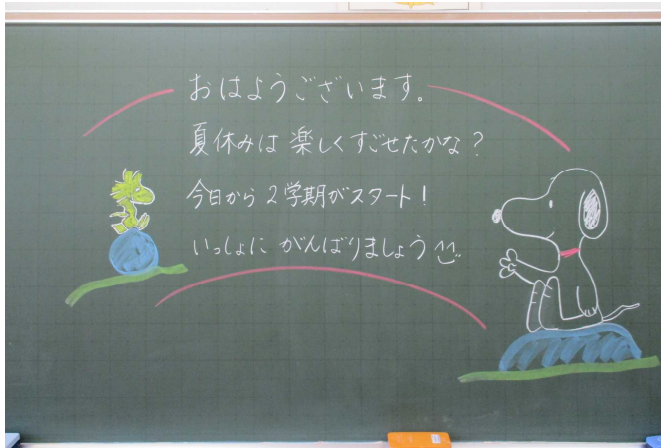 おはようございます。
夏休みは 楽しくすごせたかな?
今日から 2学期がスタート!
いっしょに がんばりましょう